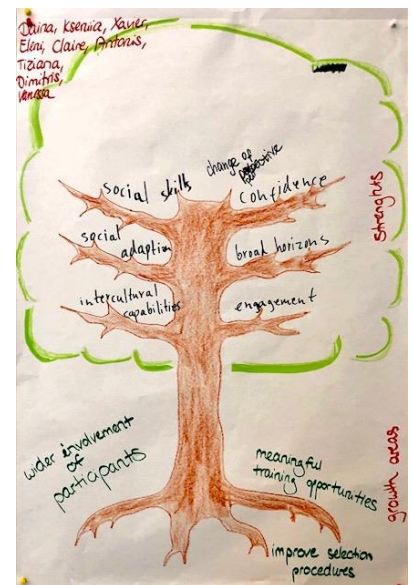 Daina, Kseniia, Xavier,
Eleni, Claire, Antonis,
Tiziana,
Dimitris,
Vanessa
change of
perspective
social skills
confidence
social
adaption
broad horizons
intercultural
capabilities
engagement
Strenghts
wider involvement
of
participants
meaningful
training opportunities
growth areas
improve selection
procedures